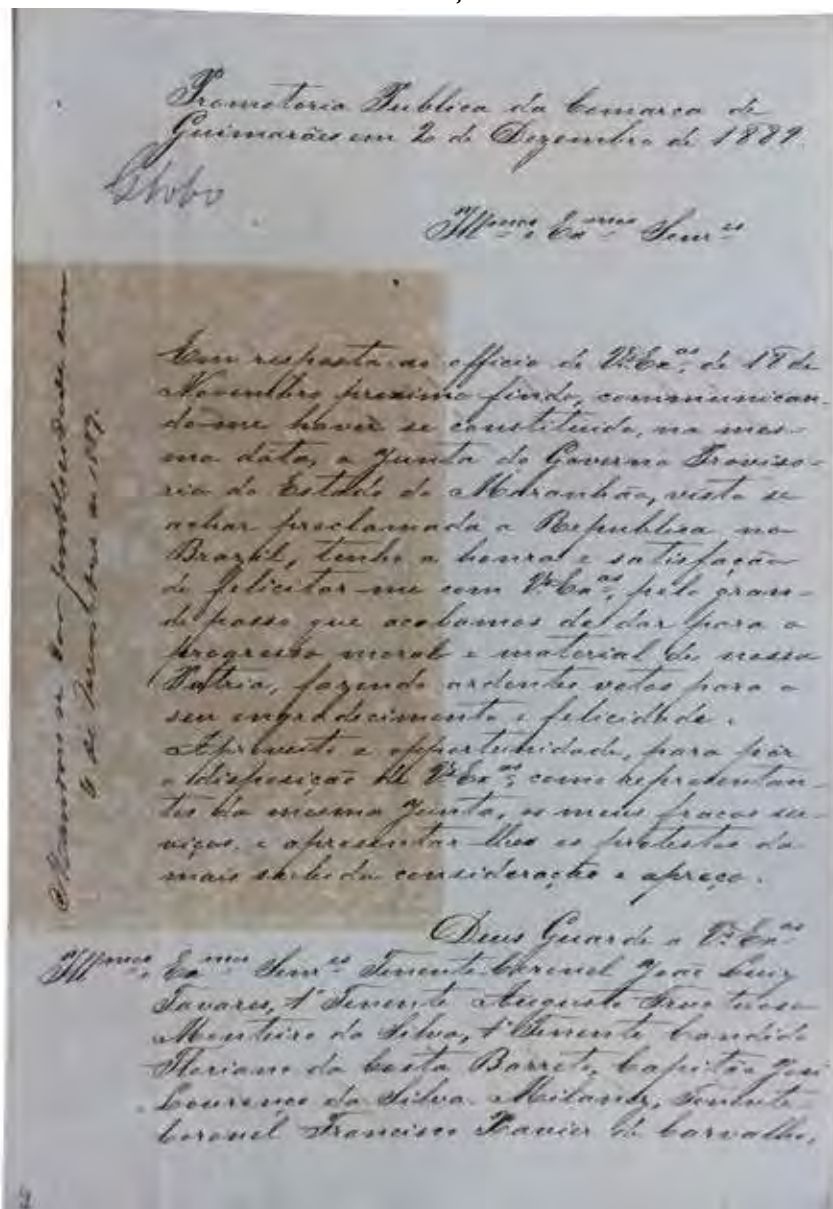 Promotoria Publica da Comarca de
Guimarães em 2 de Dezembro de 1889.
Globo
Illmos e Exmos Senres
Em resposta ao officio de V.as Ex.as, de 18 de
Novembro proximo findo, communican-
do-me haver se constituido, na mes-
ma data, a Junta do Governo Proviso-
rio do Estado do Maranhão, visto se
achar proclamada a Republica no
Brazil, tenho a honra e satisfação
de felicitar-me com V.as Ex.as, pelo gran-
de passo que acabamos de dar para o
progresso moral e material de nossa
Patria, fazendo ardentes votos para o
seu engradecimento e felicidade.
Aproveito a opportunidade, para pôr
a disposição de V.as Ex.as, como representan-
tes da mesma Junta, os meus fracos ser-
viços, e apresentar-lhes os protestos da
mais subida consideração e apreço.
Deus Guarde a V.as Ex.as
Illmos e Exmos Senres Tenente Coronel João Luiz
Tavares, 1º Tenente Augusto Fructuoso
Monteiro da Silva, 1º Tenente Candido
Floriano da Costa Barreto, Capitão José
Lourenço da Silva Milanez, Tenente
Coronel Francisco Xavier de Carvalho,
Mandou-se dar publicidade em
de 1889.